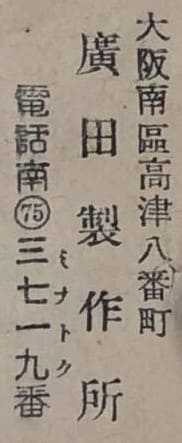 大阪南區高津八番町
廣田製作所
電話南㊆㊄三七一九番
ミナトク